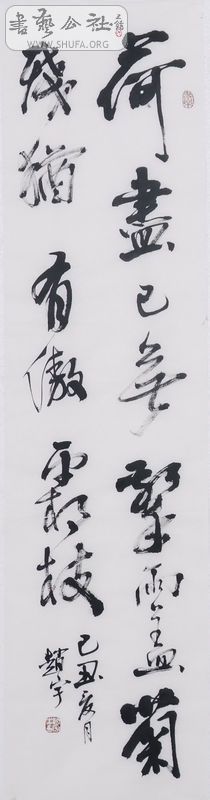 書藝公社
WWW.SHUFA.ORG
荷盡已無擎雨盖菊
殘猶有傲霜枝
己丑夏月
趙宇